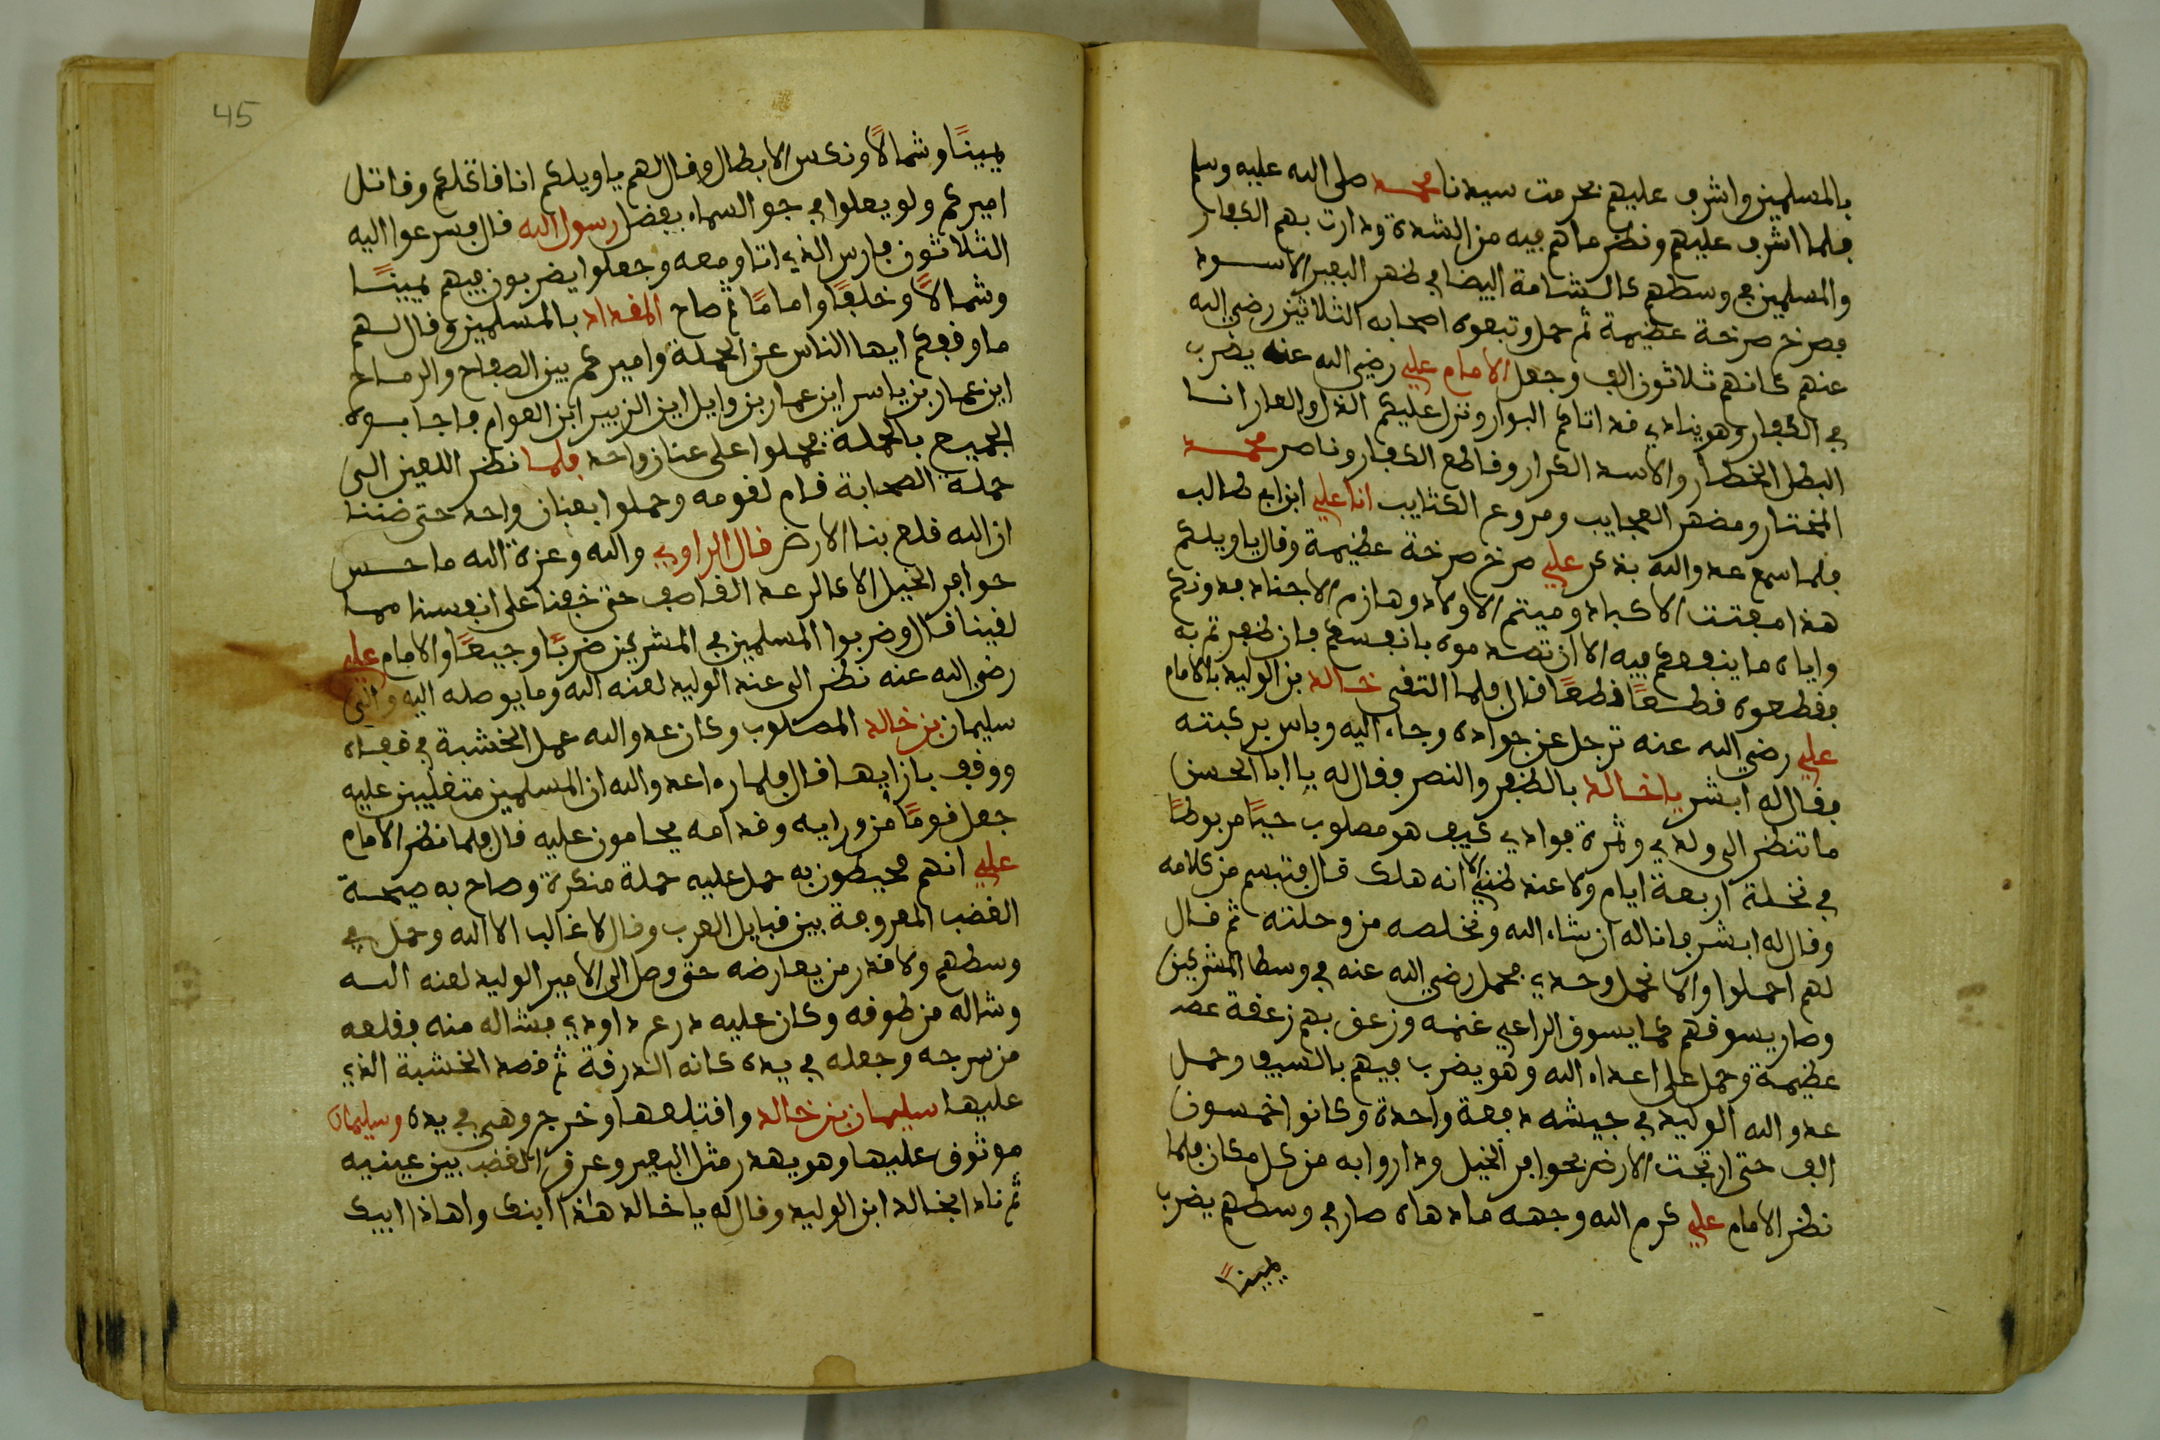 بالمسلمين واشرف عليهم بحرمت سيدنا محمد صلى الله عليه وسلم
فلما اشرف عليهم ونظر ما هم فيه من الشدة ودارت بهم الكفار
والمسلمين في وسطهم كالشامة البيضا في ظهر البعير الاسود
فصرخ صرخة عظيمة ثم حمل وتبعوه اصحابه الثلاثين رضي الله
عنهم كانهم ثلاثون الف وجعل الامام علي رضي الله عنه يضرب
في الكفار وهو ينادي قد اتاكم البوار ونزل عليكم الذل والعار انا
البطل الخطار والاسد الكرار وقاطع الكفار وناصر محمد
المختار ومضهر العجايب ومروع الكتايب انا علي ابن ابي طالب
فلما سمع عدو الله بذكر علي صرخ صرخة عظيمة وقال ياويلكم
هذا مفتت الاكباد وميتم الاولاد وهازم الاجناد فدونكم
واياه ما ينفعكم فيه الا ان تصدموه بانفسكم فان ظفرتم به
فقطعوه قطعًا قطعًا قال فلما التقى خالد بن الوليد بالامام
علي رضي الله عنه ترجل عن جواده وجاء اليه وباس بركبته
فقال له ابشر يا خالد بالظفر والنصر فقال له يا ابا الحسن
ما تنظر الى ولدي وثمرة فوادي كيف هو مصلوب حيًا مربوطًا
في نخلة اربعة ايام ولا عند ظني الا انه هلك قال فتبسم من كلامه
وقال له ابشر فاناله ان شاء الله ونخلصه من وحلته ثم قال
لهم احملوا والا نحمل وحدي فحمل رضي الله عنه في وسط المشركين
وصار يسوقهم كما يسوق الراعي غنمه وزعق بهم زعقة عضـ
عظيمة وحمل على اعداء الله وهو يضرب فيهم بالسيف وحمل
عدو الله الوليد في جيشه دفعة واحدة وكانوا خمسون
الف حتى ارتجت الارض بحوافر الخيل وداروا به من كل مكان فلما
نظر الامام علي كرم الله وجهه ما دهاه صار في وسطهم يضرب
يمينًا
45
يمينًا وشمالًا ونكس الابطال وقال لهم ياويلكم انا قاتلكم وقاتل
اميركم ولو يعلوا في جو السماء بفضل رسول الله قال فسرعوا اليه
الثلاثون فارس الذي اتا ومعه وجعلوا يضربون فيهم يمينًا
وشمالًا وخلفًا وامامًا ثم صاح المقداد بالمسلمين وقال لهم
ما وقفكم ايها الناس عن الحملة واميركم بين الصفاح والرماح
اين عمار بن ياسر اين عمار بن وايل اين الزبير ابن العوام فاجابوه
الجميع بالحملة فحملوا على عنان واحد فلما نظر اللعين الى
حملة الصحابة قام لقومه وحملوا بعنان واحد حتى ضننا
ان الله قلع بنا الارض قال الراوي والله وعزة الله ما حس
حوافر الخيل الا كالرعد القاصف حتى خفنا على انفسنا مما
لقينا قال وضربوا المسلمين في المشركين ضربًا وجيعًا والامام علي
رضي الله عنه نظر الى عند الوليد لعنه الله وما يوصله اليه واتى
سليمان بن خالد المصلوب وكان عدو الله عمل الخشبة في قفاه
ووقف بازايها قال فلما راء عدو الله ان المسلمين متغلبين عليه
جعل قومًا من ورايه وقدامه يحامون عليه قال فلما نظر الامام
علي انهم محيطون به حمل عليه حملة منكرة وصاح به صيحة
الغضب المعروفة بين قبايل العرب وقال لا غالب الا الله وحمل في
وسطهم ولا قدر من يعارضه حتى وصل الى الامير الوليد لعنه الله
وشاله من طوقه وكان عليه درع داودي فشاله منه فقلعه
من سرجه وجعله في يده كانه الدرقة ثم قصد الخشبة الذي
عليها سليمان بن خالد واقتلعها وخرج وهي في يده وسليمان
موثوق عليها وهو يهدر مثل البعير وعرق الغضب بين عينيه
ثم نادا بخالد ابن الوليد وقال له يا خالد هذا ابنك واهاذا ابيك